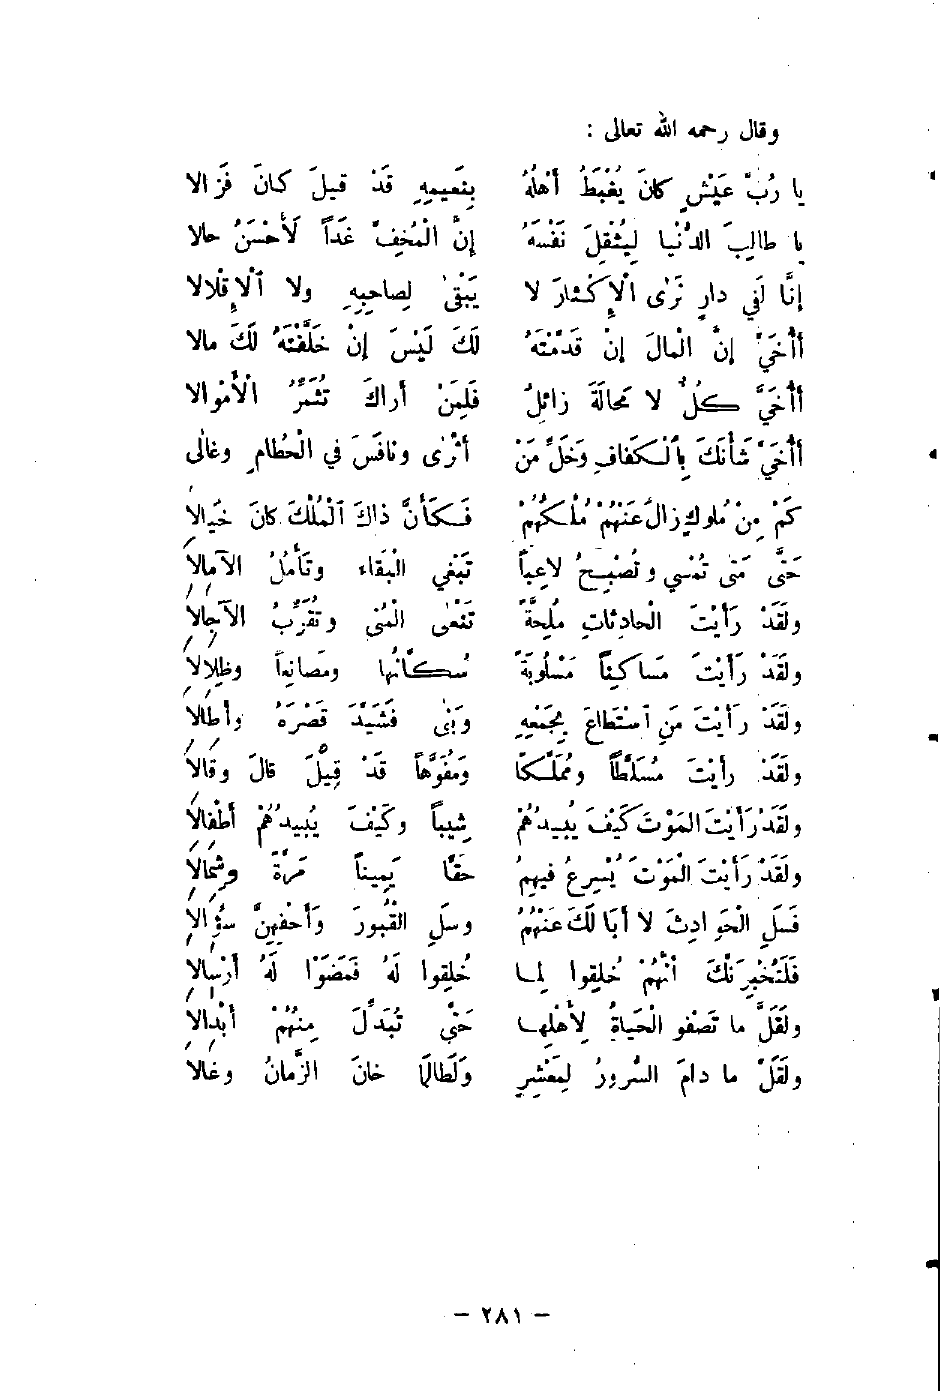 وقال رحمه الله تعالى :
يا رُبَّ عَيْشٍ كانَ يُغْبَطُ أَهْلُهُ بِنَعيمِهِ قَدْ قيلَ كانَ فَزالا
يا طالِبَ الدُّنْيا لِيُثْقِلَ نَفْسَهُ إِنَّ الْمُخِفَّ غَداً لَأَحْسَنُ حالا
إِنَّا لَفي دارٍ نَرٰى الْإِكْثارَ لا يَبْقىٰ لِصاحِبِهِ ولا ٱلْإِقْلالا
أَأُخَيَّ إِنَّ الْمالَ إِنْ قَدَّمْتَهُ لَكَ لَيْسَ إِنْ خَلَّفْتَهُ لَكَ مالا
أَأُخَيَّ كُلٌّ لا مَحالَةَ زائِلٌ فَلِمَنْ أَراكَ تُثَمِّرُ الْأَمْوالا
أَأُخَيَّ شَأْنَكَ بِٱلْكَفافِ وَخَلِّ مَنْ أَثْرٰى ونافَسَ في الْحُطامِ وغالٰى
كَمْ مِنْ مُلوكٍ زالَ عَنْهُمْ مُلْكُهُمْ فَكَأَنَّ ذاكَ ٱلْمُلْكَ كانَ خَيالا
حَتَّى مَتىٰ تُمْسي وتُصْبِحُ لاعِباً تَبْغي الْبَقاء وتَأْمُلُ الآمالا
ولَقَدْ رَأَيْتَ الْحادِثاتِ مُلِحَّةً تَنْعٰى الْمُنىٰ وتُقَرِّبُ الآجالا
ولَقَدْ رَأَيْتَ مَساكِناً مَسْلُوبَةً سُكَّانُها ومَصانِعاً وظِلالا
ولَقَدْ رَأَيْتَ مَنِ ٱسْتَطاعَ بِجَمْعِهِ وَبَنٰى فَشَيَّدَ قَصْرَهُ وأَطالا
ولَقَدْ رأَيْتَ مُسَلَّطاً ومُمَلَّكاً ومُفَوَّهاً قَدْ قِيْلَ قالَ وقالا
ولَقَدْ رَأَيْتَ المَوْتَ كَيْفَ يُبيدُهُمْ شِيباً وكَيْفَ يُبيدُهُمْ أَطْفالا
ولَقَدْ رَأَيْتَ الْمَوْتَ يُسْرِعُ فيهِمُ حَقًّا يَميناً مَرَّةً وشِمالا
فَسَلِ الْحَوادِثَ لا أَبَا لَكَ عَنْهُمُ وسَلِ الْقُبورَ وَأَحْفِهِنَّ سُؤَالا
فَلَتُخْبِرَنَّكَ أَنَّهُمْ خُلِقوا لِما خُلِقوا لَهُ فَمَضَوْا لَهُ أَرْسالا
ولَقَلَّ ما تَصْفو الْحَياةُ لِأَهْلِها حَتَّى تُبَدِّلَ مِنْهُمْ أَبْدالا
ولَقَلَّ ما دامَ السُّرورُ لِمَعْشَرٍ وَلَطالَما خانَ الزَّمانُ وغالا
– ٢٨١ –